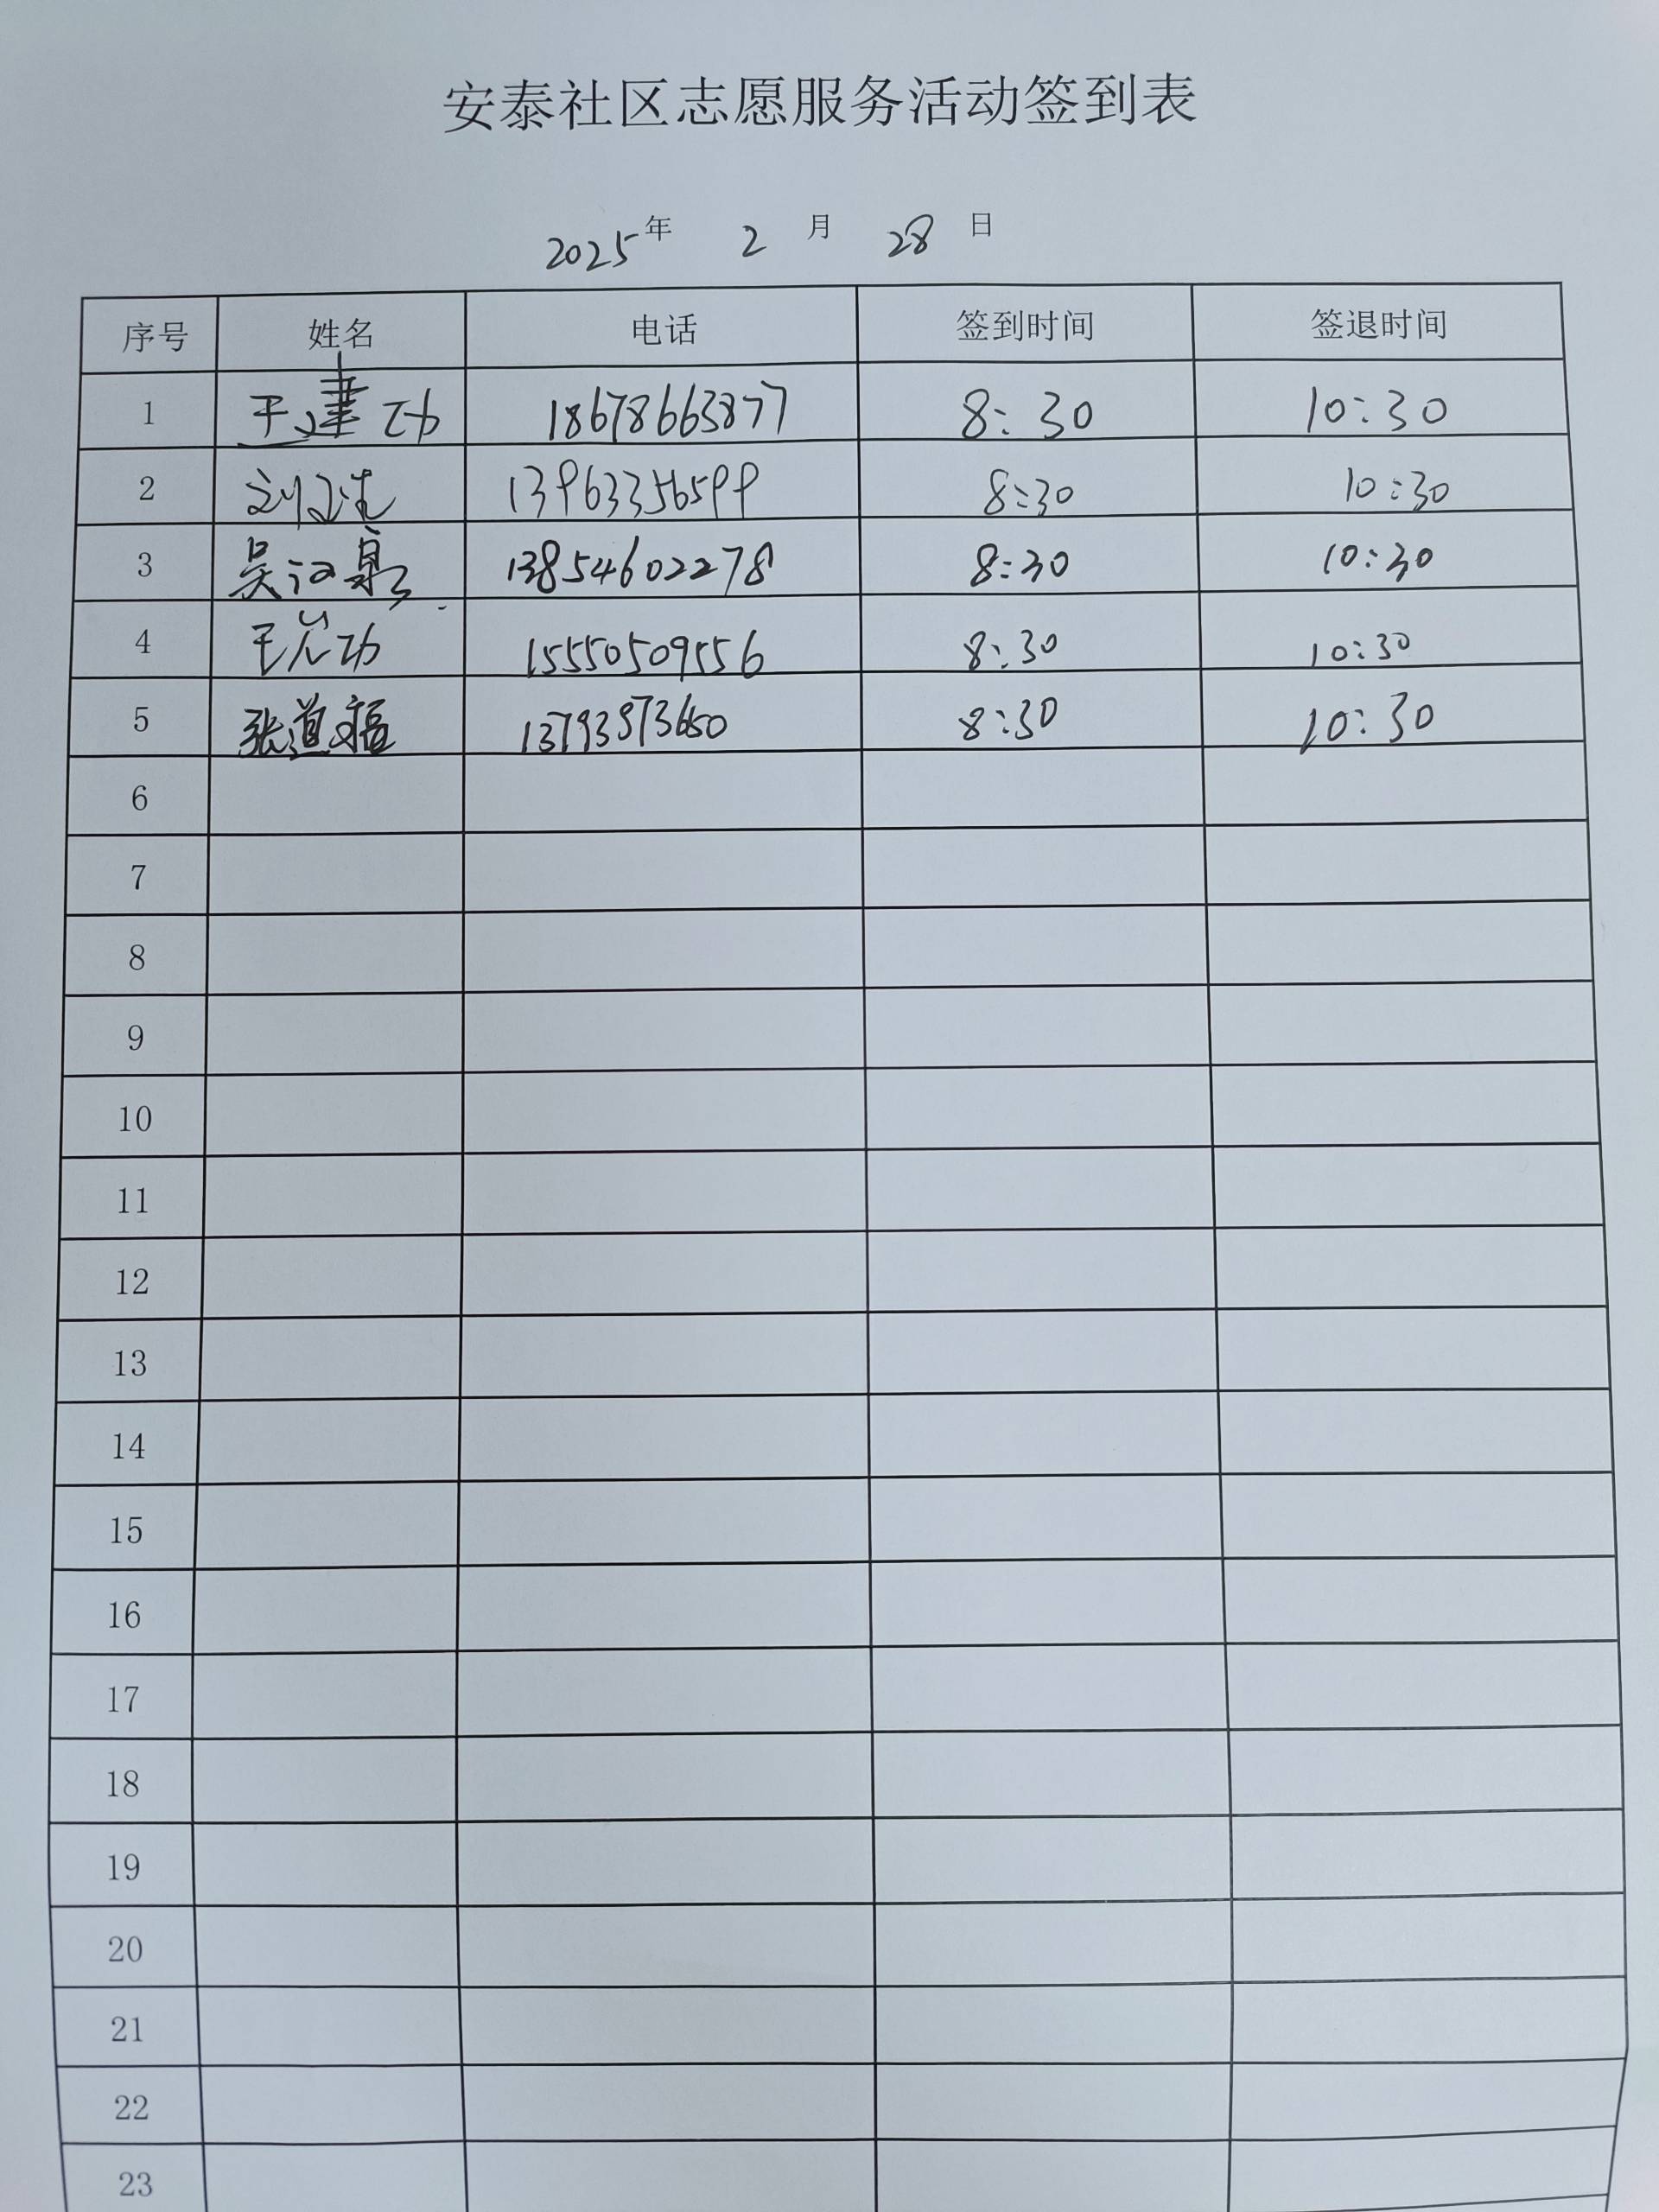 安泰社区志愿服务活动签到表
2025年 2 月 28 日
序号 姓名 电话 签到时间 签退时间
1 于建功 18678663877 8:30 10:30
2 刘 13963356599 8:30 10:30
3 吴汉泉 13854602278 8:30 10:30
4 王 功 15550509556 8:30 10:30
5 张道福 13793973650 8:30 10:30
6
7
8
9
10
11
12
13
14
15
16
17
18
19
20
21
22
23